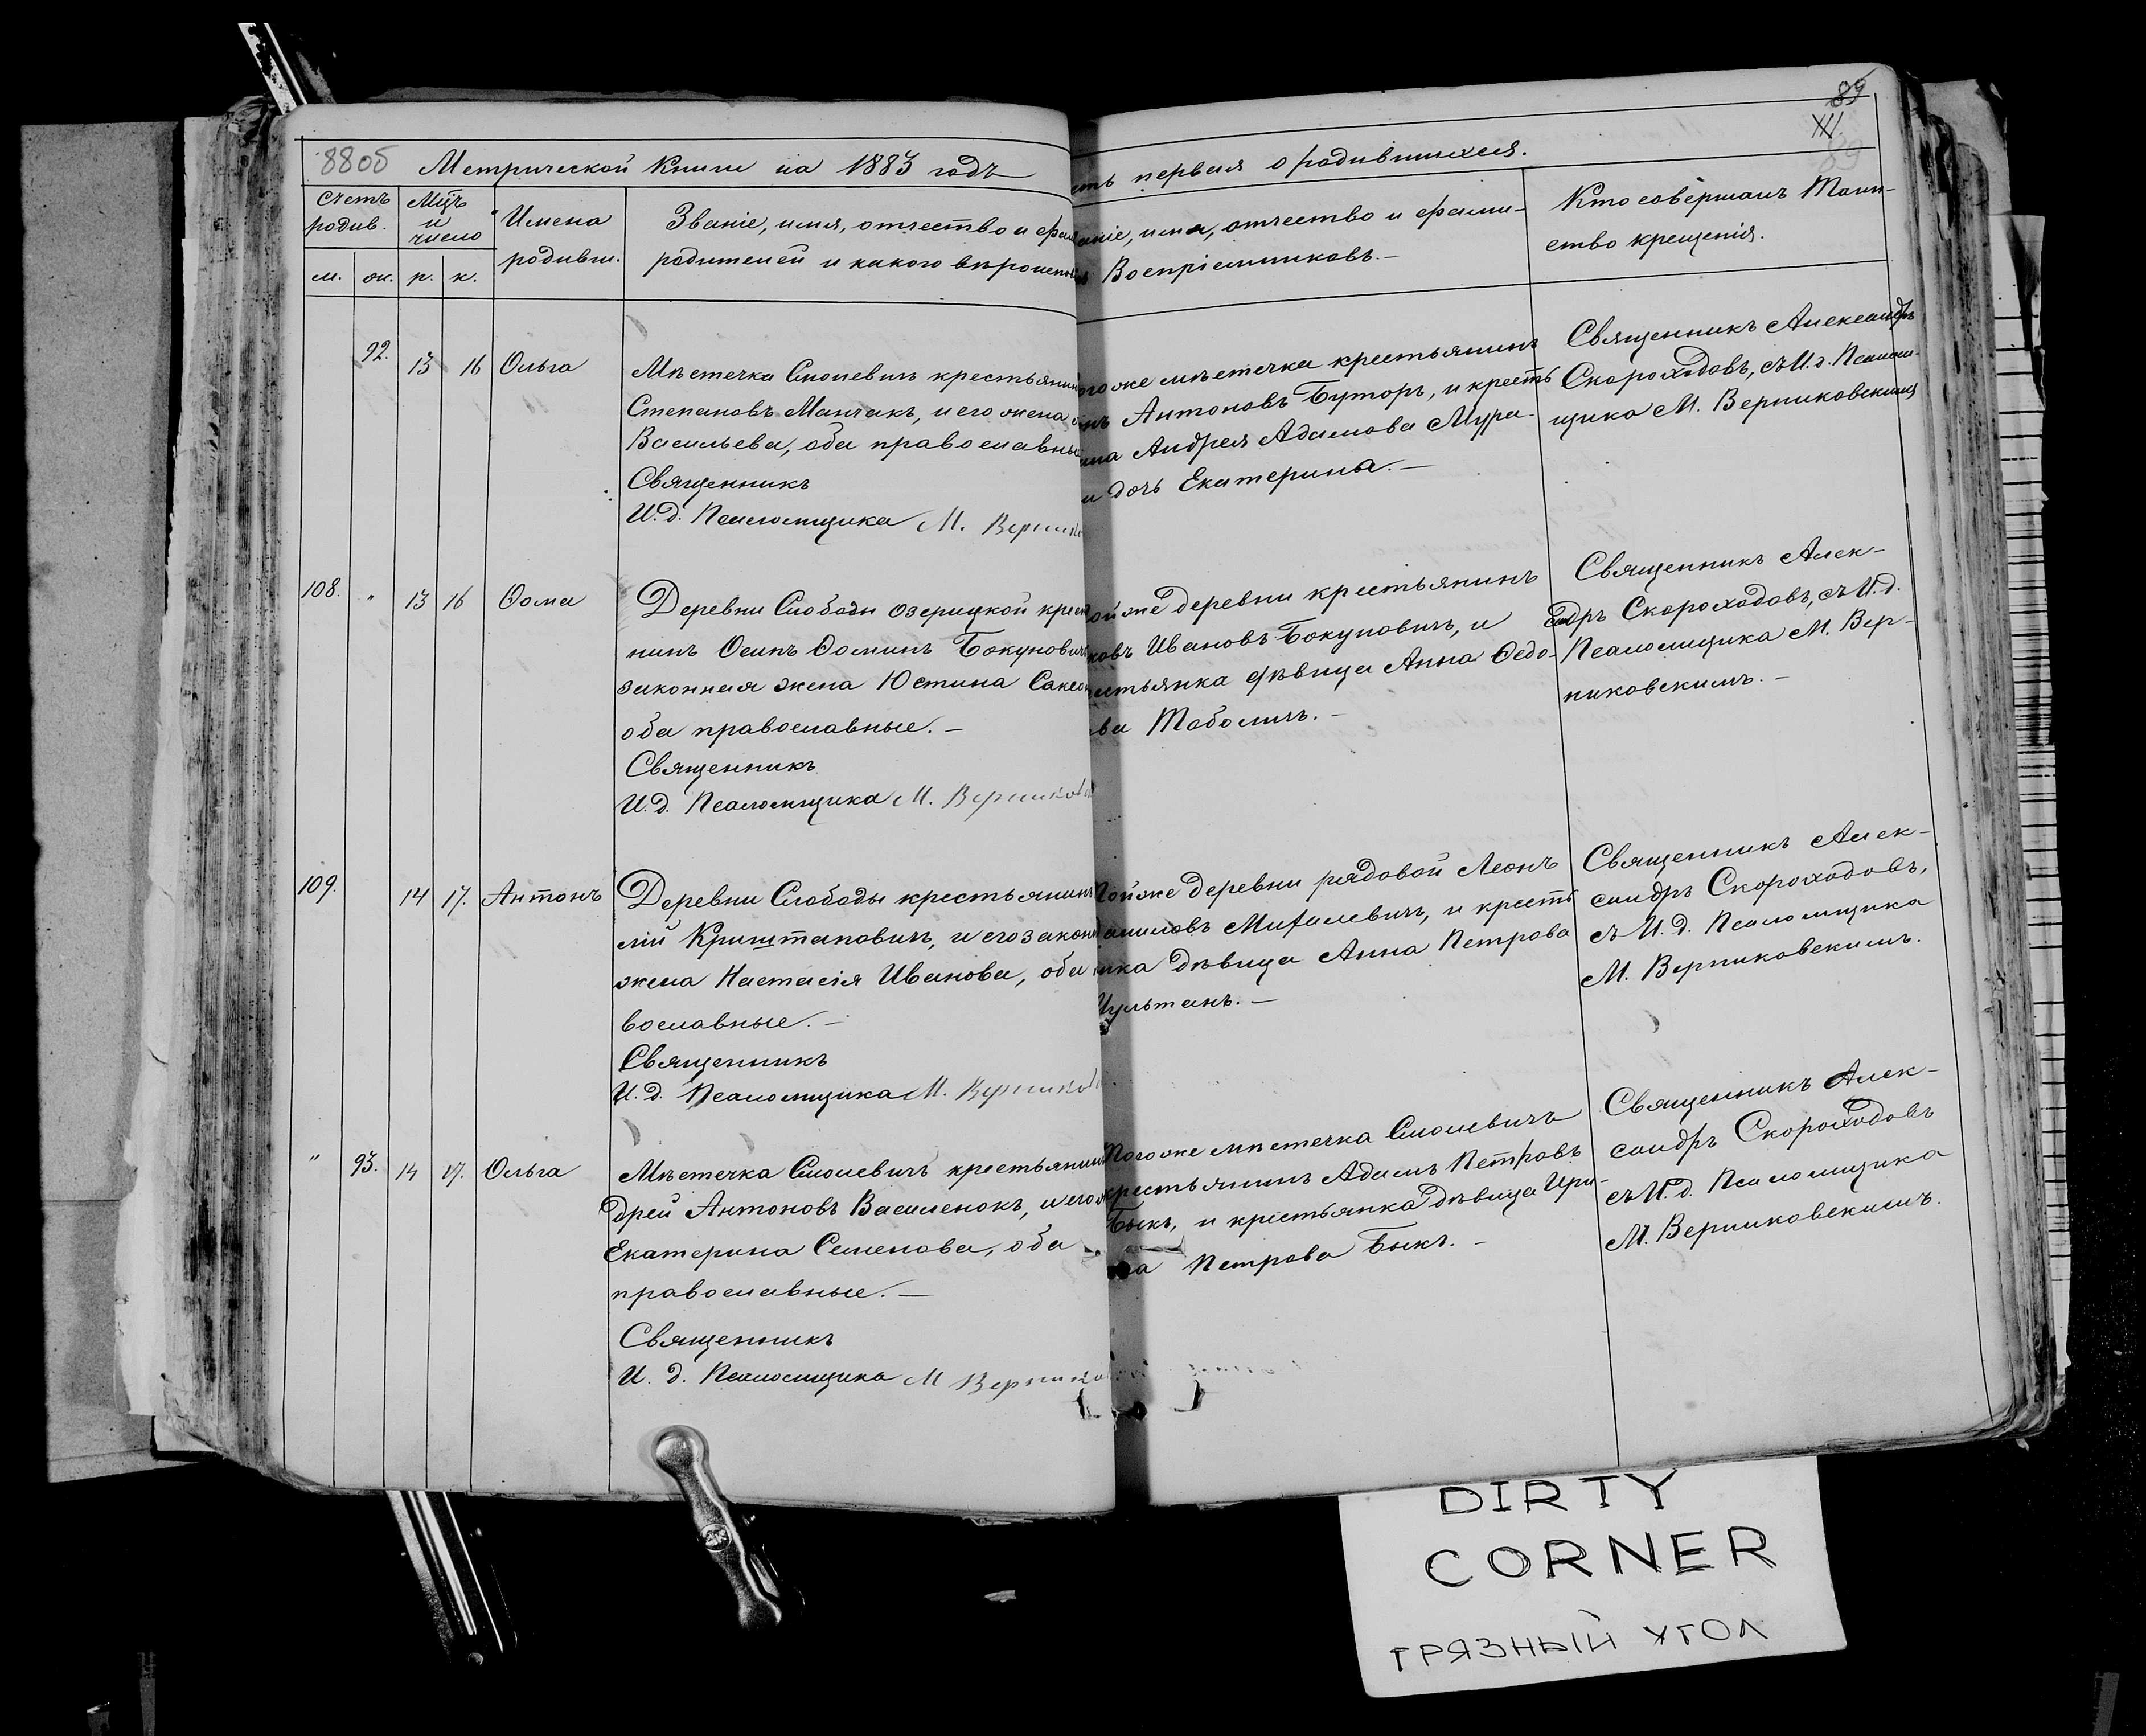 88об Метрической Книги на 1883 годъ
сть первая о родившихся.
89
XII.
89
Счетъ родив.
Мцъ и число
Имена родивш.
Званіе, имя, отчество и фам
родителей и какого вѣроиспов
аніе, имя, отчество и фами-
Воспріемниковъ.-
Кто совершалъ Таин-
ство крещенія.
м. ж. р. к.
92. 13 16 Ольга
Мѣстечка Смолевичъ крестьянин
Степановъ Манчакъ, и его жена
Васильева, оба православны
Священникъ
И. д. Псаломщика М. Вернико
ого же мѣстечка крестьянинъ
Антоновъ Буторъ, и кресть
Андрея Адамова Мура-
и дочь Екатерина.-
Священникъ Александръ
Скороходовъ, съ И. д. Псалом-
щика М. Верниковскимъ
108. " 13 16 Ѳома
Деревни Слободы Озерицкой крест
нинъ Осипъ Ѳоминъ Бокуновичъ
законная жена Юстина Саксон
оба православные.-
Священникъ
И. д. Псаломщика М. Верников
ой же деревни крестьянинъ
ковъ Ивановъ Бокуновичъ, и
естьянка дѣвица Анна Ѳедо-
ва Таболичъ.-
Священникъ Алек-
сандръ Скороходовъ, съ И. д.
Псаломщика М. Вер-
никовскимъ.-
109. 14 17. Антонъ
Деревни Слободы крестьянинъ
лій Криштаповичъ, и его закон
жена Настасія Иванова, оба
вославные.-
Священникъ
И. д. Псаломщика М. Верников
Той же деревни рядовой Леонъ
Даниловъ Михалевичъ, и кресть
янка дѣвица Анна Петрова
Шультанъ.-
Священникъ Алек-
сандръ Скороходовъ,
съ И. д. Псаломщика
М. Верниковскимъ.
" 93. 14 17. Ольга
Мѣстечка Смолевичъ крестьянин
дрей Антоновъ Василенокъ, и его
Екатерина Семенова, оба
православные.-
Священникъ
И. д. Псаломщика М Верников
Того же мѣстечка Смолевичъ
крестьянинъ Адамъ Петровъ
Быкъ, и крестьянка дѣвица Ири-
на Петрова Быкъ.-
Священникъ Алек-
сандръ Скороходовъ
съ И. д. Псаломщика
М. Верниковскимъ.
DIRTY
CORNER
ГРЯЗНЫЙ УГОЛ